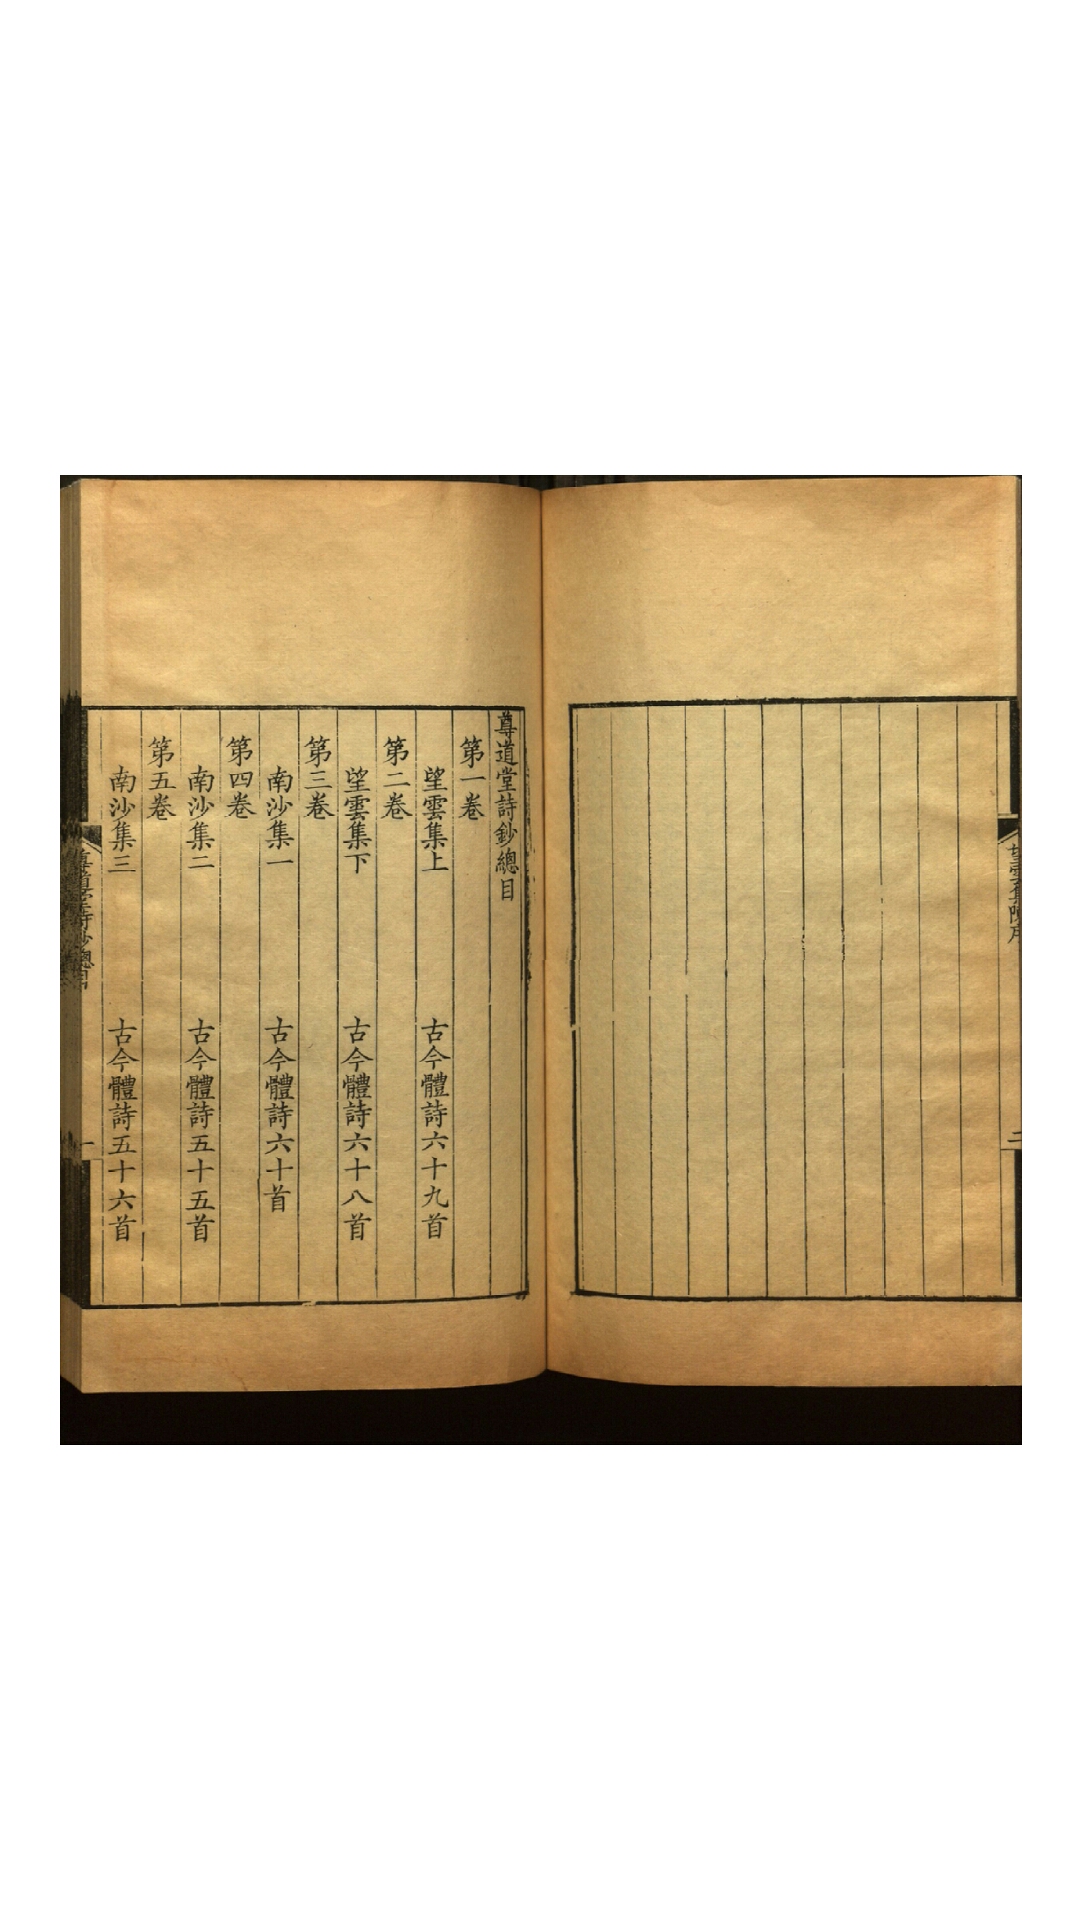 二
尊道堂詩鈔總目
第一卷
望雲集上 古今體詩六十九首
第二卷
望雲集下 古今體詩六十八首
第三卷
南沙集一 古今體詩六十首
第四卷
南沙集二 古今體詩五十五首
第五卷
南沙集三 古今體詩五十六首
尊道堂詩鈔總目 一